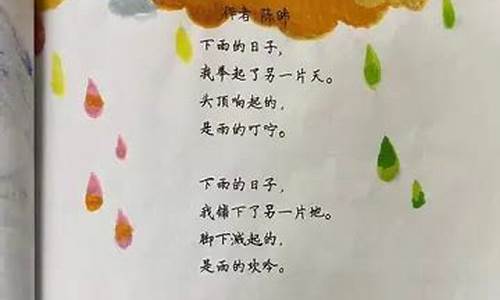 作者:陈晞
下雨的日子,
我举起了另一片天。
头顶响起的,
是雨的叮咛。
下雨的日子,
我铺下了另一片地。
脚下溅起的,
是雨的欢吟。